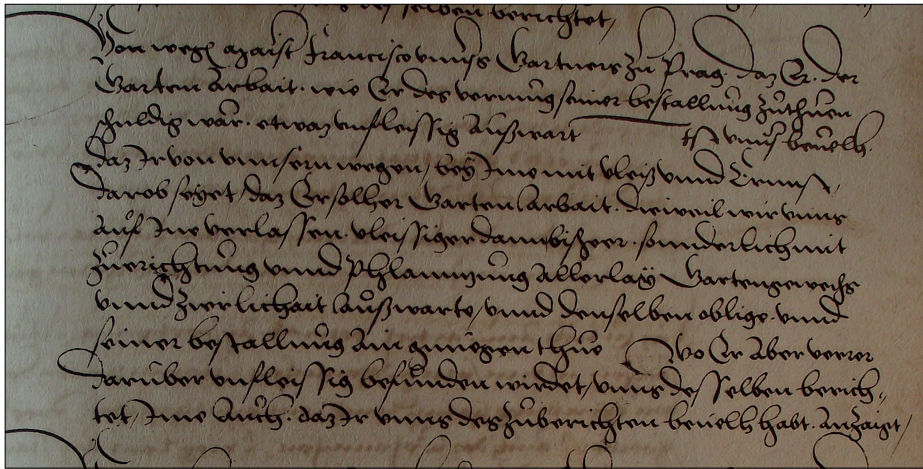 desselben berichtet,
Von wegen maist Francisco unnsers Gartners zu Prag. daz Er. der
Garten Arbait. wie Er des vermüg seiner bestallung zuthuen
schuldig wär. etwaz unfleissig Außwart ist unns bevelh.
daz Ir von unnsern wegen, bey Ime mit vleiß unnd Ernnst,
darob seyet, daz Er solher Garten Arbait. dieweil wir unns
Auf Ine verlassen. vleissiger dann bißheer. sonderlich mit
Zuerichtung unnd Phlannzung Allerlay Gartengewechs
unnd Zierlichait Außwarte, unnd denselben oblige. unnd
seiner bestallung Ain genüegen thue Wo Er Aber verrer
darüber unfleissig befunden wirdet, unns desselben berich-
tet, Ime Auch. daz Ir unns des Zuberichten bevelh habt. Anzaigt,